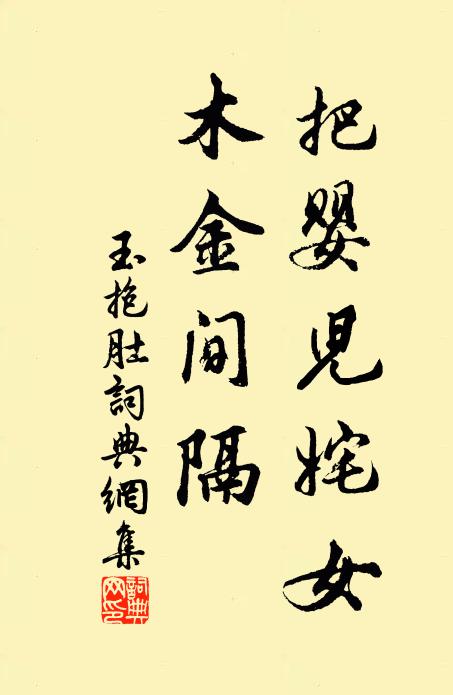 把嬰兒姹女
木金間隔
玉抱肚詞典網集
詞典网印